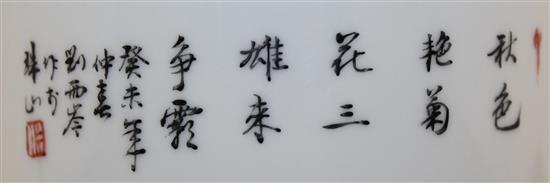 秋色
艳菊
花三
雄来
争霸
癸未年
仲春
刘西岑
作於
珠山